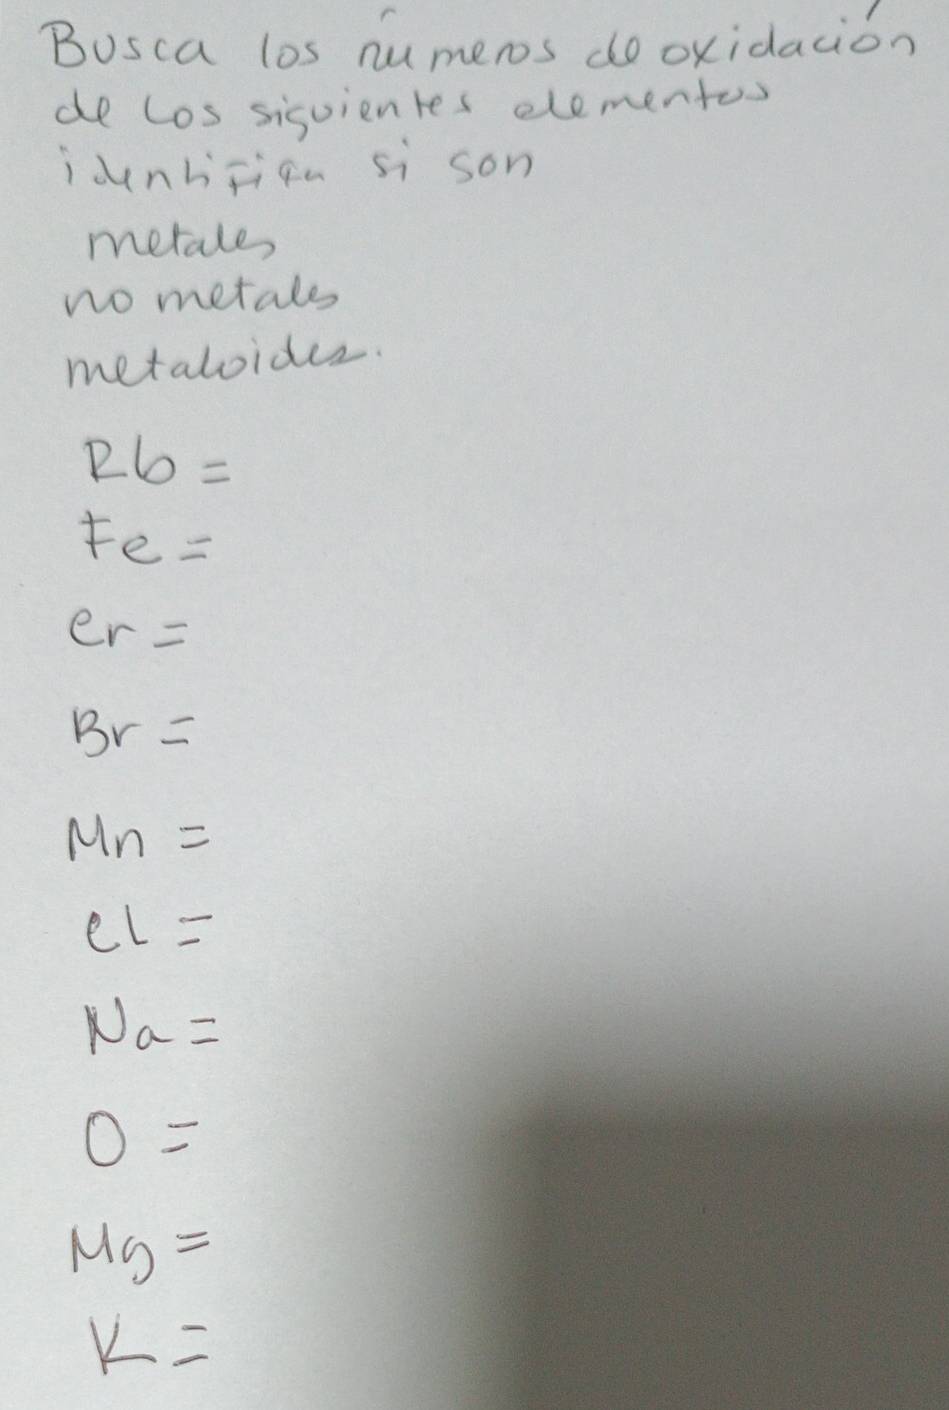 Busca los números de oxidación
de los siguientes elementos
identifica si son
metales
no metales
metaloides.
Rb =
Fe =
Cr =
Br =
Mn =
Cl =
Na =
O =
Mg =
K =